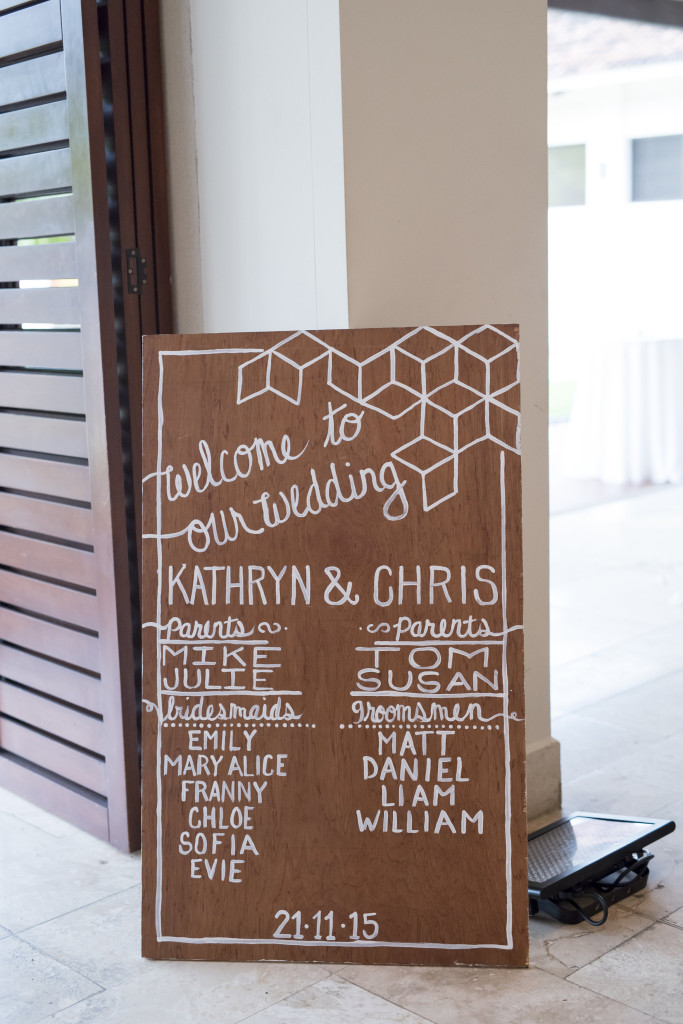 welcome to
our wedding
KATHRYN & CHRIS
Parents
MIKE
JULIE
Parents
TOM
SUSAN
bridesmaids
EMILY
MARY ALICE
FRANNY
CHLOE
SOFIA
EVIE
groomsmen
MATT
DANIEL
LIAM
WILLIAM
21·11·15